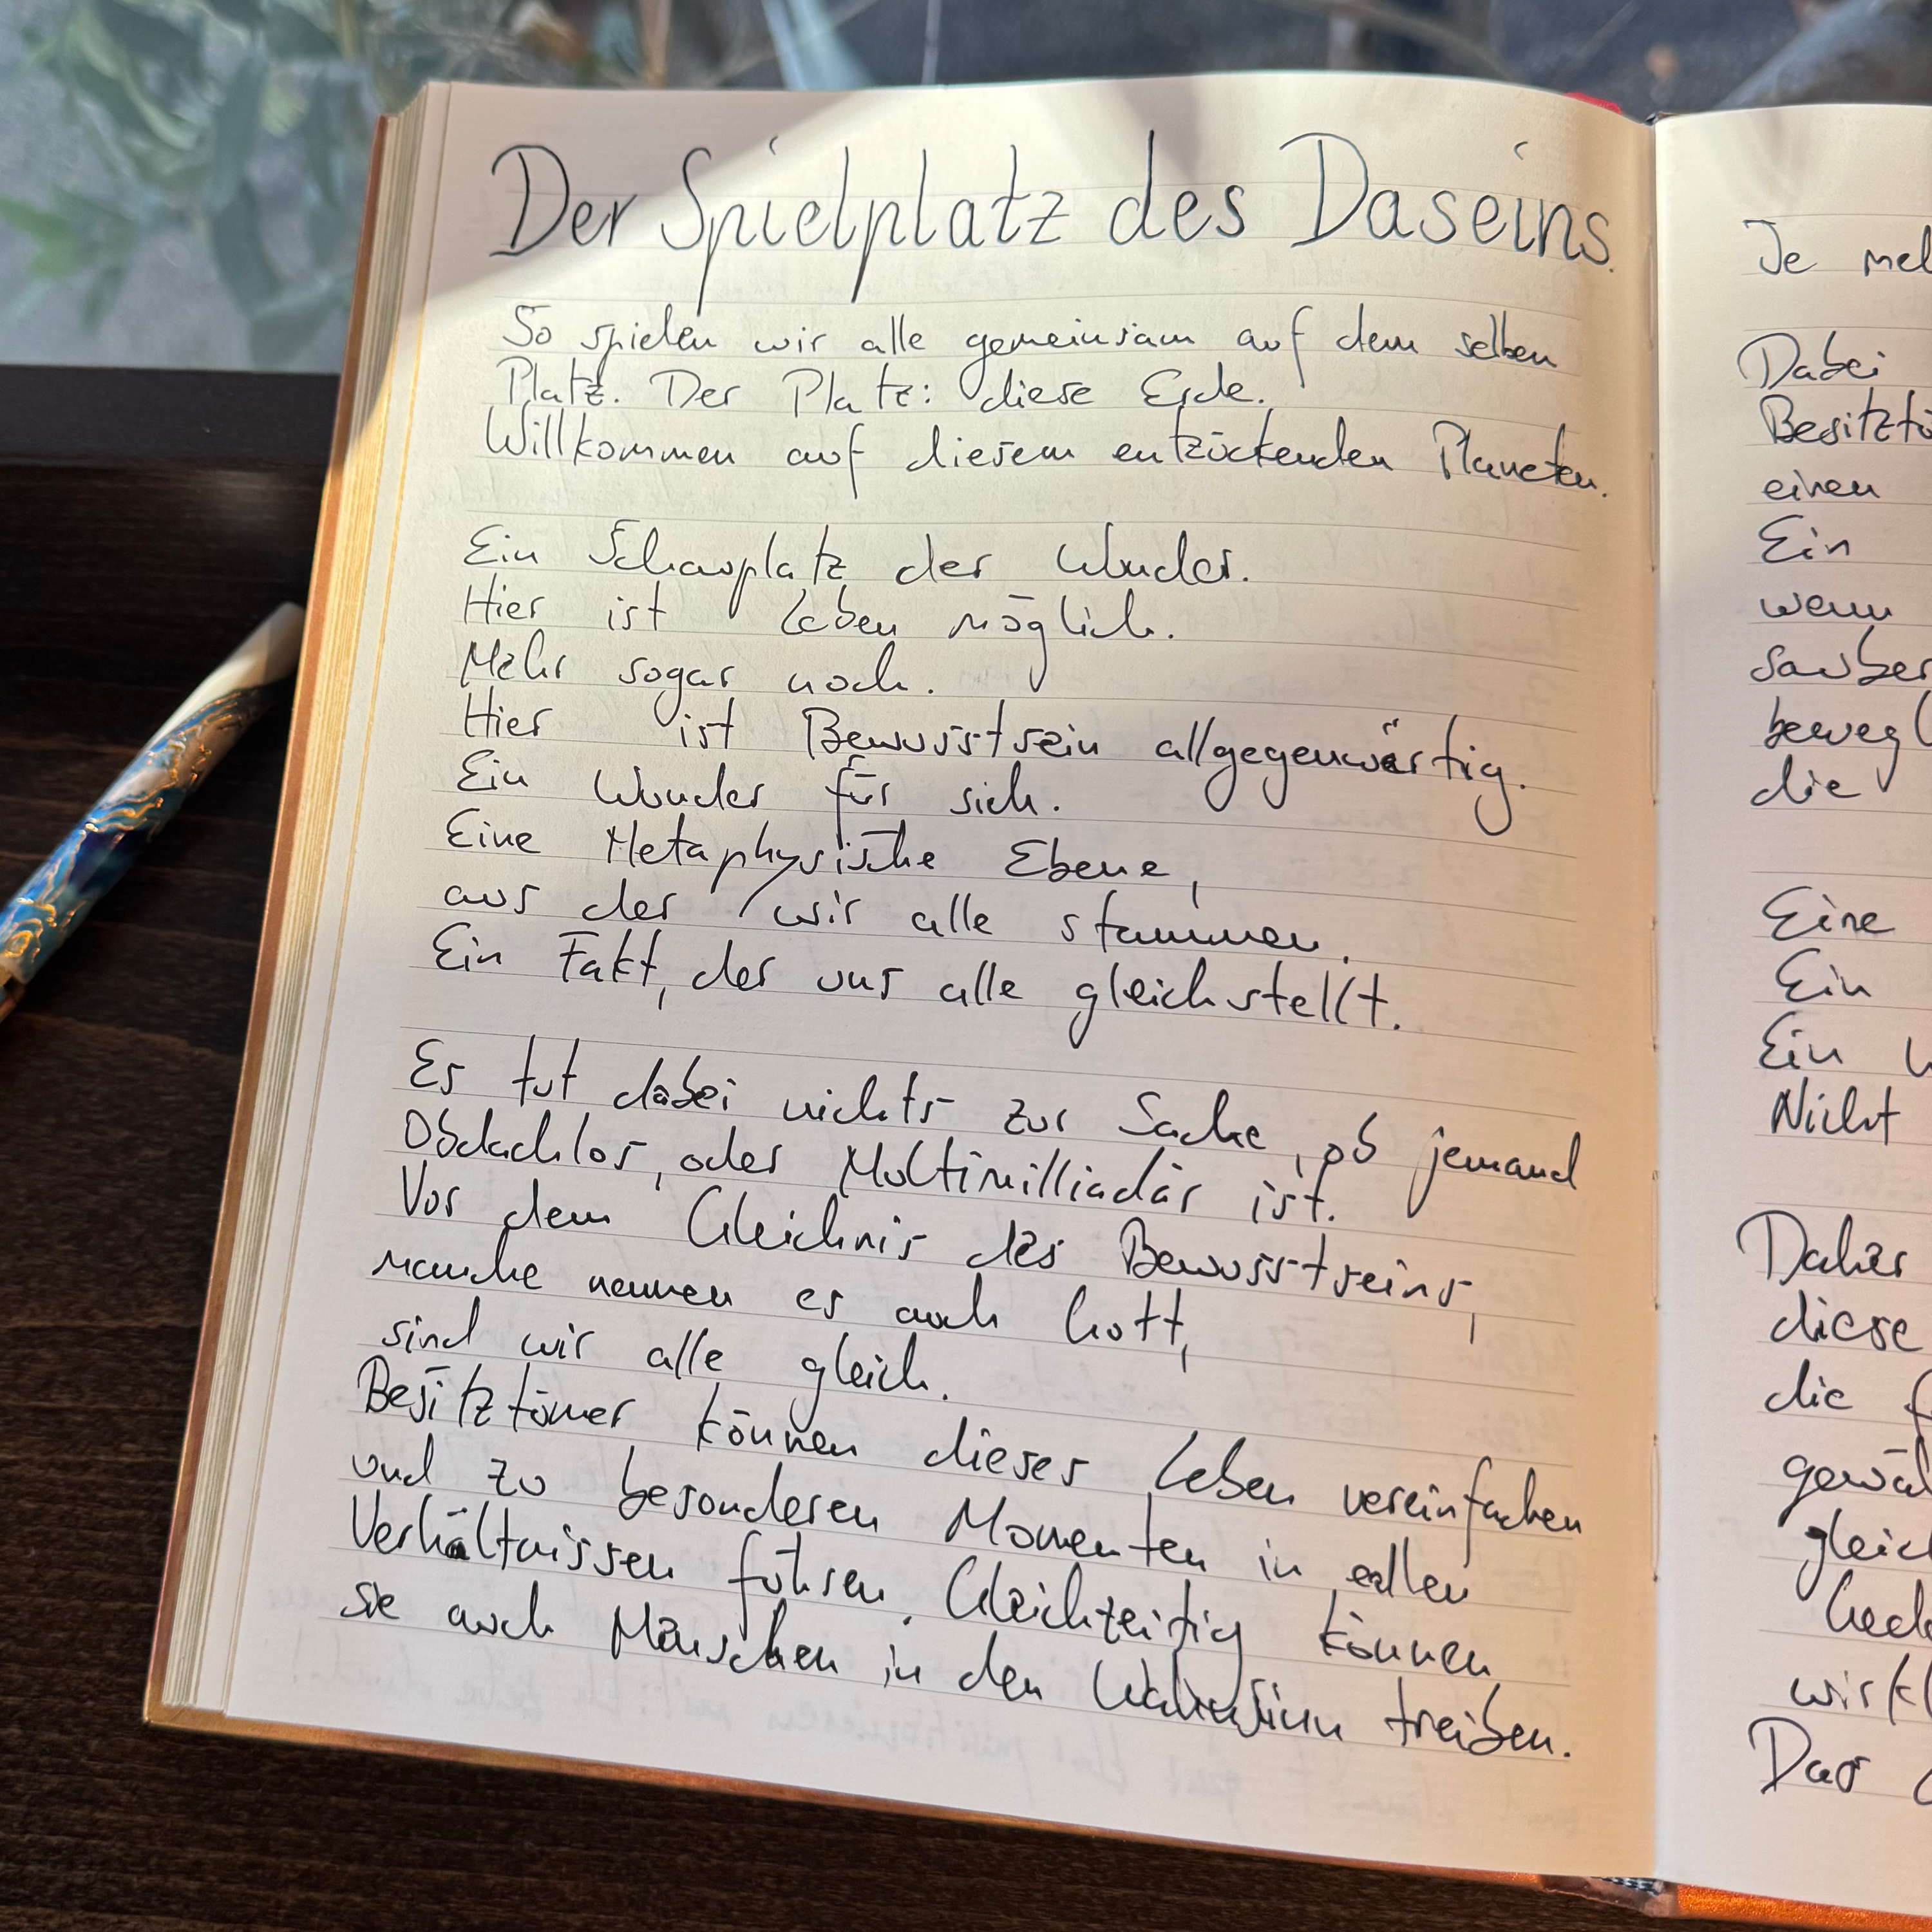 Der Spielplatz des Daseins.
So spielen wir alle gemeinsam auf dem selben
Platz. Der Platz: diese Erde.
Willkommen auf diesem entzückenden Planeten.
Ein Schauplatz der Wunder.
Hier ist Leben möglich.
Mehr sogar noch.
Hier ist Bewusstsein allgegenwärtig.
Ein Wunder für sich.
Eine Metaphysische Ebene,
aus der wir alle stammen.
Ein Fakt, der uns alle gleichstellt.
Es tut dabei nichts zur Sache, ob jemand
Obdachlos, oder Multimilliadär ist.
Vor dem Gleichnis des Bewusstseins,
manche nennen es auch Gott,
sind wir alle gleich.
Besitztümer können dieses Leben vereinfachen
und zu besonderen Momenten in allen
Verhältnissen führen. Gleichzeitig können
sie auch Menschen in den Wahnsinn treiben.
Je
Dabei
einen
Ein
wenn
die
Eine
Ein
Ein
Nicht
Daher
diese
die